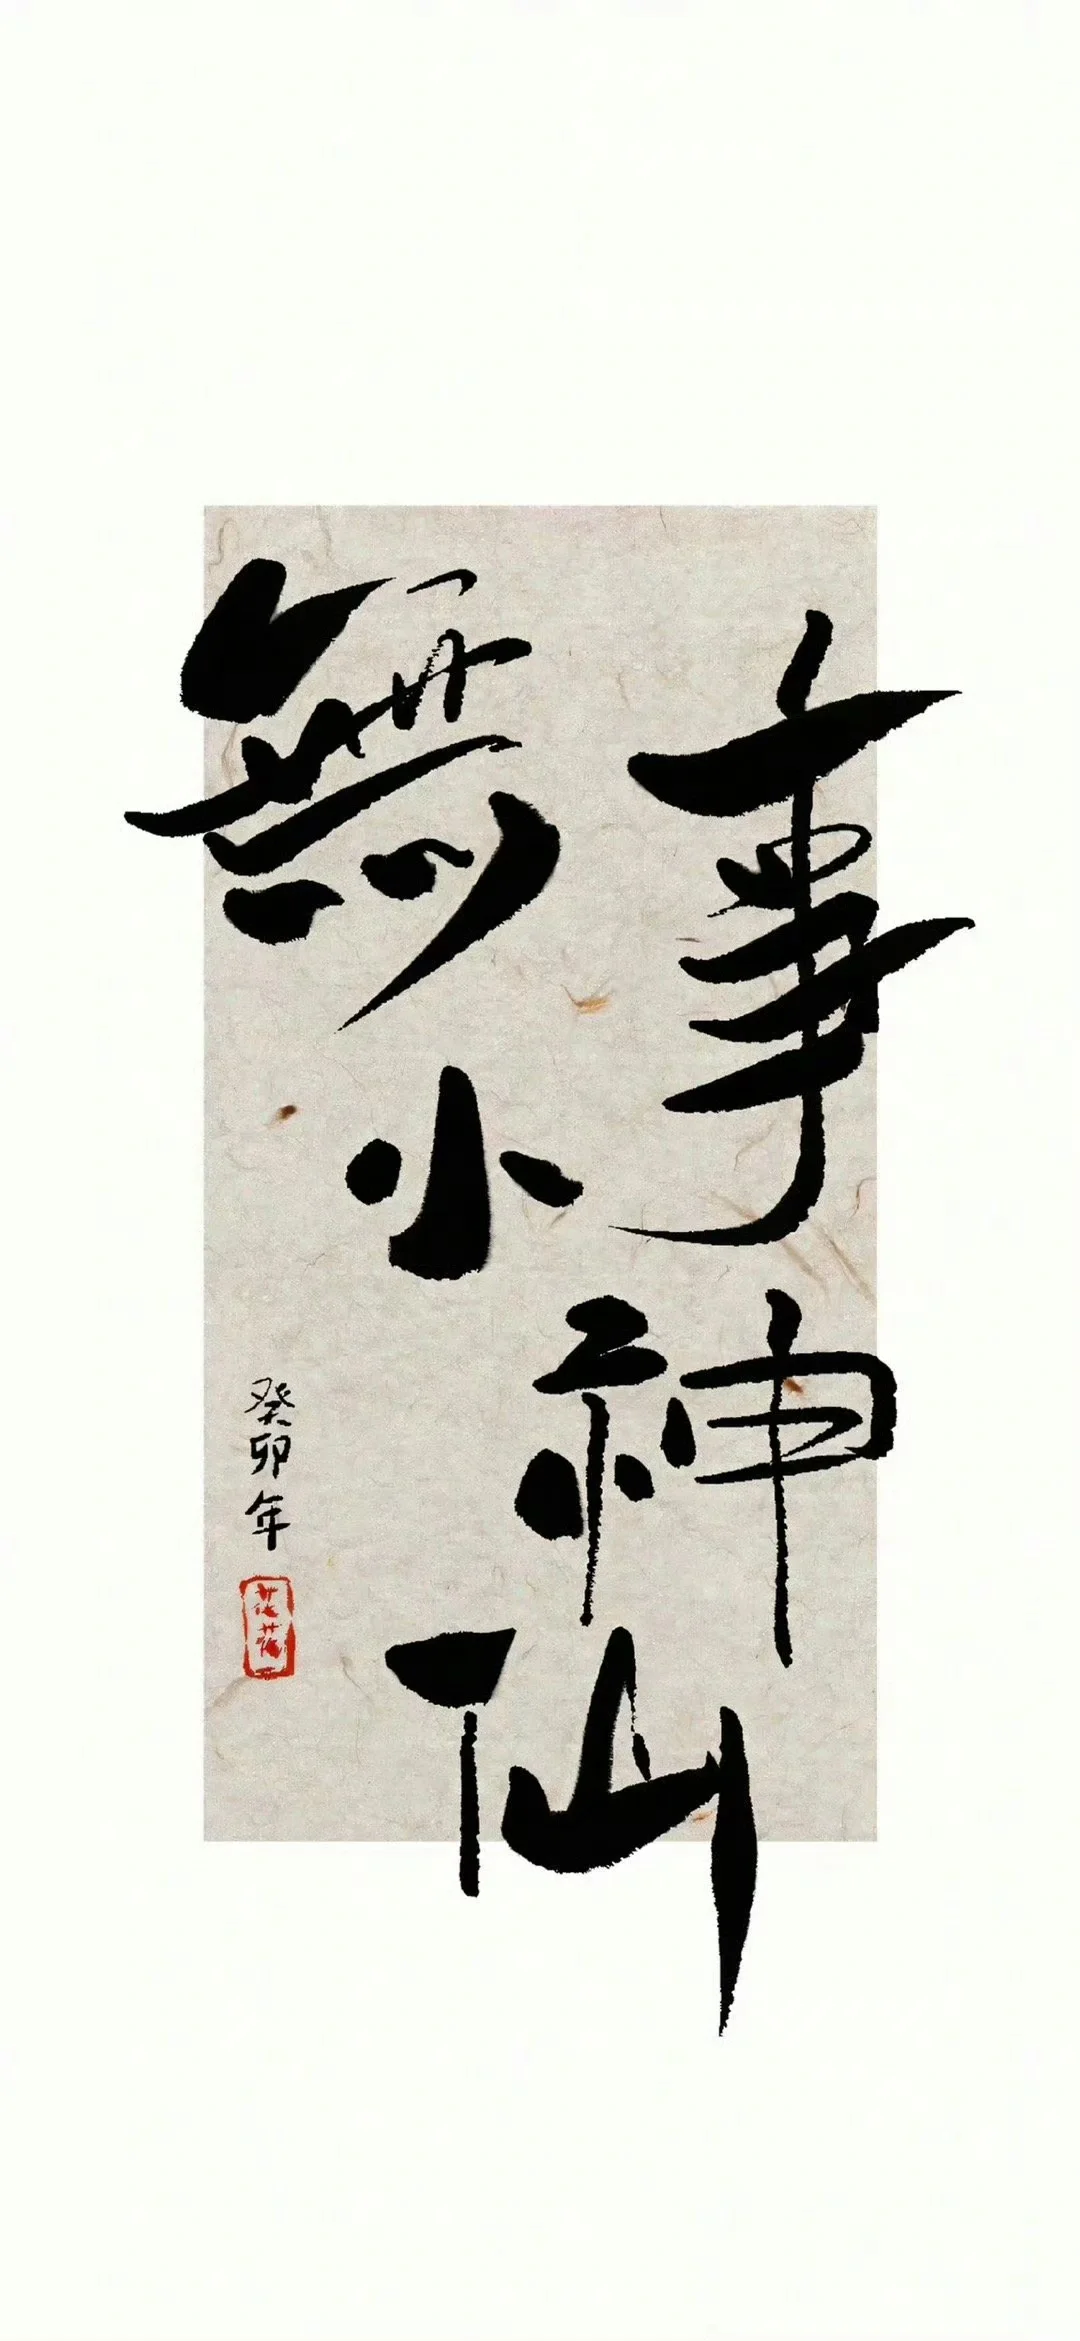 無事
小神仙
癸卯年